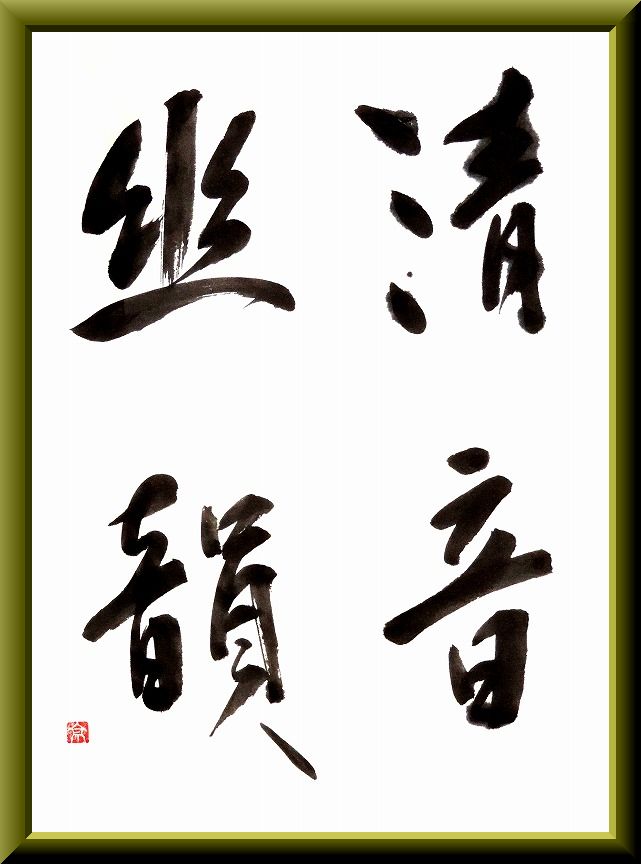 清音
幽韻